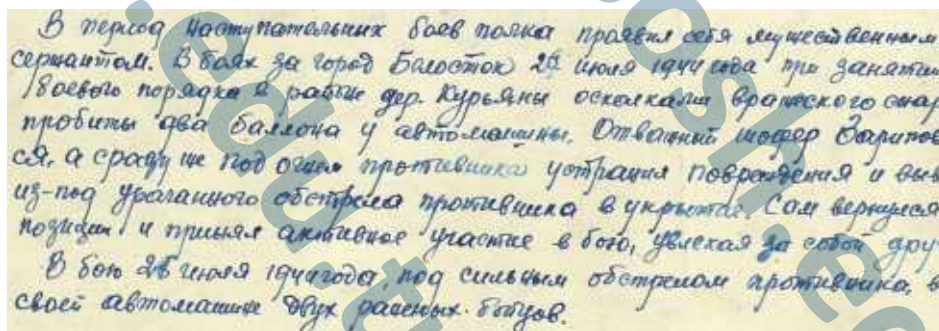 В период наступательных боев полка проявил себя мужественным
сержантом. В боях за город Белосток 26 июля 1944 года при занятии
боевого порядка в районе дер. Курьяны осколками вражеского снар
пробиты два баллона у автомашины. Отважный шофер Зарипов
ся, а сразу же под огнем противника устранил повреждения и выв
из-под ураганного обстрела противника в укрытие. Сам вернулся
позиции и принял активное участие в бою, увлекая за собой дру
В бою 28 июля 1944 года, под сильным обстрелом противника, в
своей автомашине двух раненых бойцов.